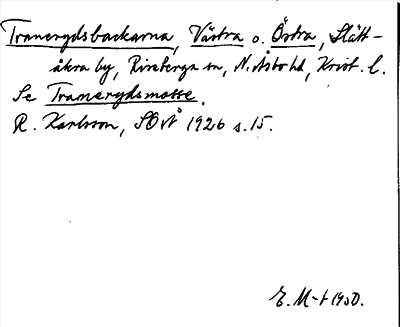 Tranerydsbackarna, Västra o. Östra, Slätt-
åkra by, Riseberga sn, N. Åsbo hd, Krist. l.
Se Tranerydsmosse.
R. Karlsson, SOÅ 1926 s. 15.
E. M-t 1950.